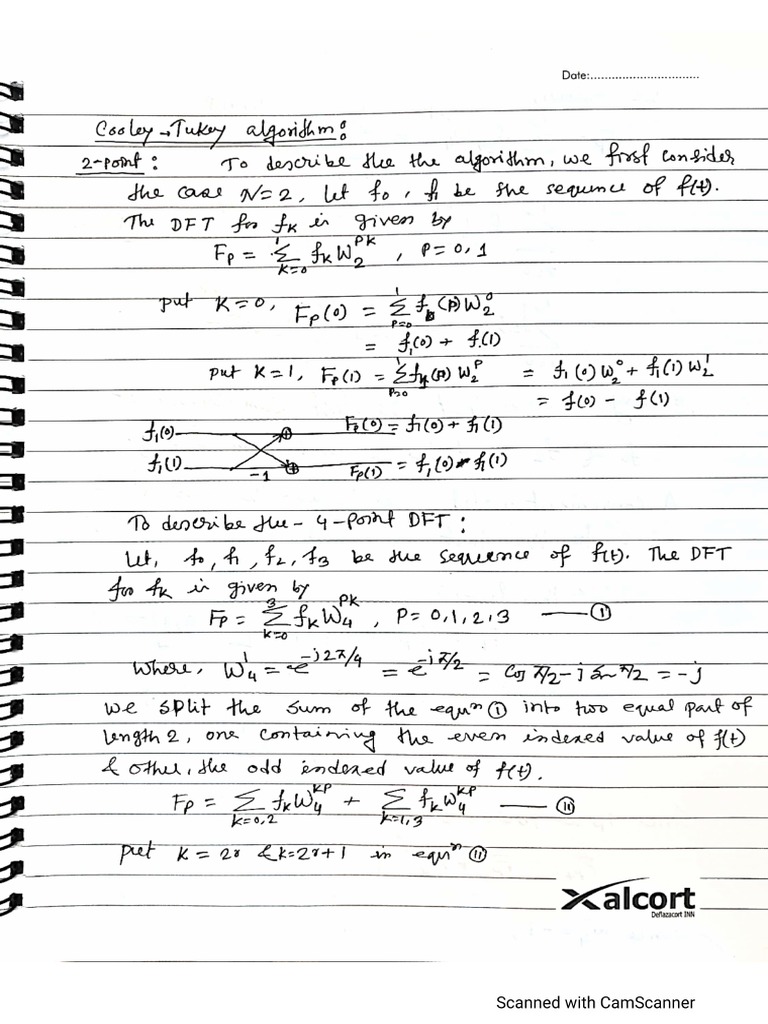 Date:..............................
Cooley-Tukey algorithm:
2-point: To describe the the algorithm, we first consider
the case N=2, let f₀, f₁ be the sequence of f(t).
The DFT for fₖ is given by
Fₚ = Σ_{k=0}^{1} fₖ W₂^{PK} , P=0,1
put K=0, Fₚ(0) = Σ_{P=0}^{1} fₖ(P) W₂⁰
= f₁(0) + f₁(1)
put K=1, Fₚ(1) = Σ_{P=0}^{1} fₖ(P) W₂^P = f₁(0) W₂⁰ + f₁(1) W₂¹
= f(0) - f(1)
f₁(0) Fₚ(0) = f₁(0) + f₁(1)
f₁(1) -1 Fₚ(1) = f₁(0) - f₁(1)
To describe the - 4-point DFT:
Let, f₀, f₁, f₂, f₃ be the sequence of f(t). The DFT
for fₖ is given by
Fₚ = Σ_{k=0}^{3} fₖ W₄^{PK} , P=0,1,2,3 —— (I)
Where, W₄¹ = e^{-j2π/4} = e^{-jπ/2} = cos π/2 - j sin π/2 = -j
we split the sum of the equⁿ (I) into two equal part of
length 2, one containing the even indexed value of f(t)
& other, the odd indexed value of f(t).
Fₚ = Σ_{k=0,2} fₖ W₄^{KP} + Σ_{k=1,3} fₖ W₄^{KP} —— (II)
put K = 2r & k=2r+1 in equⁿ (II)
Xalcort
Deflazacort INN
Scanned with CamScanner